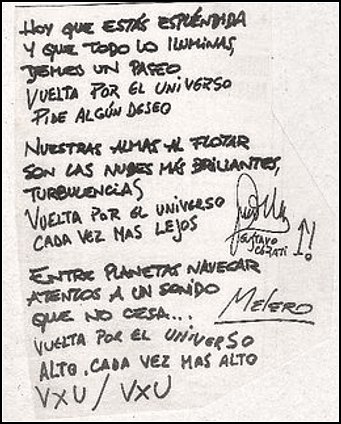 HOY QUE ESTÁS ESPLÉNDIDA
Y QUE TODO LO ILUMINAS,
DEMOS UN PASEO
VUELTA POR EL UNIVERSO
PIDE ALGÚN DESEO
NUESTRAS ALMAS AL FLOTAR
SON LAS NUBES MÁS BRILLANTES,
TURBULENCIAS
VUELTA POR EL UNIVERSO
CADA VEZ MAS LEJOS
GUSTAVO
CERATI
ENTRE PLANETAS NAVEGAR
ATENTOS A UN SONIDO
QUE NO CESA...
MELERO
VUELTA POR EL UNIVERSO
ALTO, CADA VEZ MAS ALTO
VXU / VXU